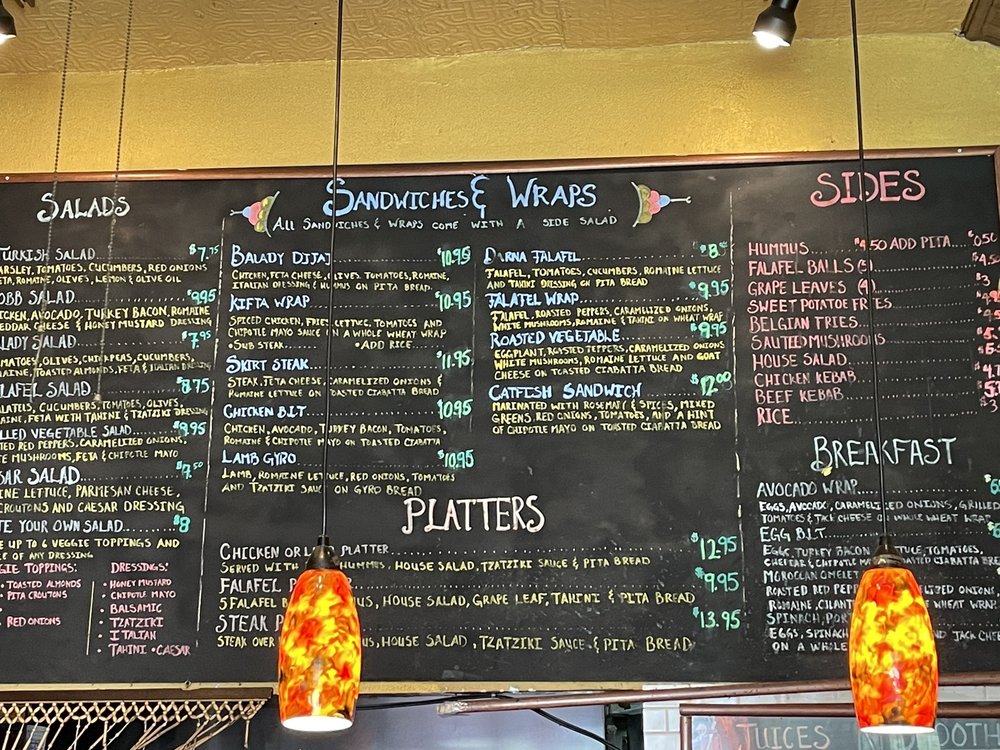 SALADS
TURKISH SALAD $7.75
PARSLEY, TOMATOES, CUCUMBERS, RED ONIONS
FETA, ROMAINE, OLIVES, LEMON & OLIVE OIL
COBB SALAD $9.95
CHICKEN, AVOCADO, TURKEY BACON, ROMAINE
CHEDDAR CHEESE & HONEY MUSTARD DRESSING
BALADY SALAD $7.95
TOMATOES, OLIVES, CHICKPEAS, CUCUMBERS,
ROMAINE, TOASTED ALMONDS, FETA & ITALIAN DRESSING
FALAFEL SALAD $8.75
CUCUMBERS, TOMATOES, OLIVES,
ROMAINE, FETA WITH TAHINI & TZATZIKI DRESSING
GRILLED VEGETABLE SALAD $9.95
ROASTED RED PEPPERS, CARAMELIZED ONIONS,
WHITE MUSHROOMS, FETA & CHIPOTLE MAYO
CAESAR SALAD $7.50
ROMAINE LETTUCE, PARMESAN CHEESE,
CROUTONS AND CAESAR DRESSING
CREATE YOUR OWN SALAD $8
UP TO 6 VEGGIE TOPPINGS AND
OF ANY DRESSING
VEGGIE TOPPINGS:
• TOASTED ALMONDS
• PITA CROUTONS
• RED ONIONS
DRESSINGS:
• HONEY MUSTARD
• CHIPOTLE MAYO
• BALSAMIC
• TZATZIKI
• ITALIAN
• TAHINI • CAESAR
SANDWICHES & WRAPS
ALL SANDWICHES & WRAPS COME WITH A SIDE SALAD
BALADY DIJAJ $10.95
CHICKEN, FETA CHEESE, OLIVES, TOMATOES, ROMAINE,
ITALIAN DRESSING & HUMMUS ON PITA BREAD.
KIFTA WRAP $10.95
SPICED CHICKEN, FRIES, LETTUCE, TOMATOES AND
CHIPOTLE MAYO SAUCE IN A WHOLE WHEAT WRAP
• SUB STEAK • ADD RICE
SKIRT STEAK $11.95
STEAK, FETA CHEESE, CARAMELIZED ONIONS &
ROMAINE LETTUCE ON TOASTED CIABATTA BREAD
CHICKEN B.L.T. $10.95
CHICKEN, AVOCADO, TURKEY BACON, TOMATOES,
ROMAINE & CHIPOTLE MAYO ON TOASTED CIABATTA
LAMB GYRO $10.95
LAMB, ROMAINE LETTUCE, RED ONIONS, TOMATOES
AND TZATZIKI SAUCE ON GYRO BREAD
DARNA FALAFEL $8
FALAFEL, TOMATOES, CUCUMBERS, ROMAINE LETTUCE
AND TAHINI DRESSING ON PITA BREAD
FALAFEL WRAP $9.95
FALAFEL, ROASTED PEPPERS, CARAMELIZED ONIONS,
WHITE MUSHROOMS, ROMAINE & TAHINI ON WHEAT WRAP
ROASTED VEGETABLE $9.95
EGGPLANT, ROASTED PEPPERS, CARAMELIZED ONIONS
WHITE MUSHROOMS, ROMAINE LETTUCE AND GOAT
CHEESE ON TOASTED CIABATTA BREAD
CATFISH SANDWICH $12.00
MARINATED WITH ROSEMARY & SPICES, MIXED
GREENS, RED ONIONS, TOMATOES, AND A HINT
OF CHIPOTLE MAYO ON TOASTED CIABATTA BREAD
PLATTERS
CHICKEN OR LAMB PLATTER $12.95
SERVED WITH HUMMUS, HOUSE SALAD, TZATZIKI SAUCE & PITA BREAD
FALAFEL P $9.95
5 FALAFEL HUMMUS, HOUSE SALAD, GRAPE LEAF, TAHINI & PITA BREAD
STEAK P $13.95
STEAK OVER HUMMUS, HOUSE SALAD, TZATZIKI SAUCE & PITA BREAD
SIDES
HUMMUS $4.50 ADD PITA $0.50
FALAFEL BALLS (5) $4.50
GRAPE LEAVES (4)
SWEET POTATOE FRIES
BELGIAN FRIES
SAUTEED MUSHROOMS
HOUSE SALAD
CHICKEN KEBAB
BEEF KEBAB
RICE $3
BREAKFAST
AVOCADO WRAP
EGGS, AVOCADO, CARAMELIZED ONIONS, GRILLED
TOMATOES & JACK CHEESE ON WHOLE WHEAT WRAP
EGG B.L.T.
EGGS, TURKEY BACON, LETTUCE, TOMATOES,
CHEDDAR, & CHIPOTLE MAYO TOASTED CIABATTA BREAD
MOROCCAN OMELET
ROASTED RED PEPPERS, CARAMELIZED ONIONS
ROMAINE, CILANTRO WHEAT WRAP
SPINACH, PORT
EGGS, SPINACH AND JACK CHEESE
ON A WHOLE
JUICES SMOOTH